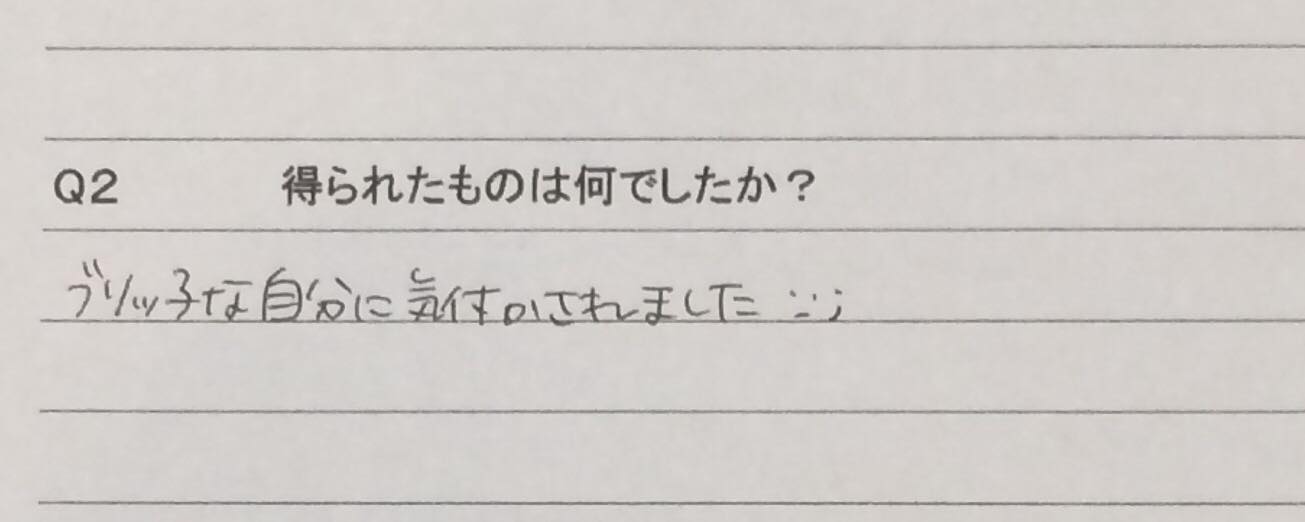 Q2 得られたものは何でしたか？
ブリッ子な自分に気付かされました :-;